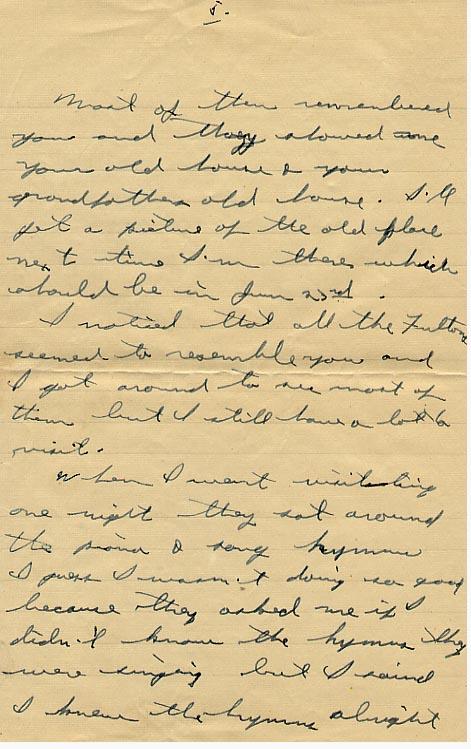 5.
Most of them remembered
you and they showed me
your old house & your
grandfathers old house. I'll
get a picture of the old place
next time I'm there which
should be in Jun 23rd.
I noticed that all the Fultons
seemed to resemble you and
I got around to see most of
them but I still have a lot to
visit.
When I went visiting
one night they sat around
the piano & sang hymns
I guess I wasn't doing so good
because they asked me if I
didn't know the hymns they
were singing but I said
I knew the hymns alright